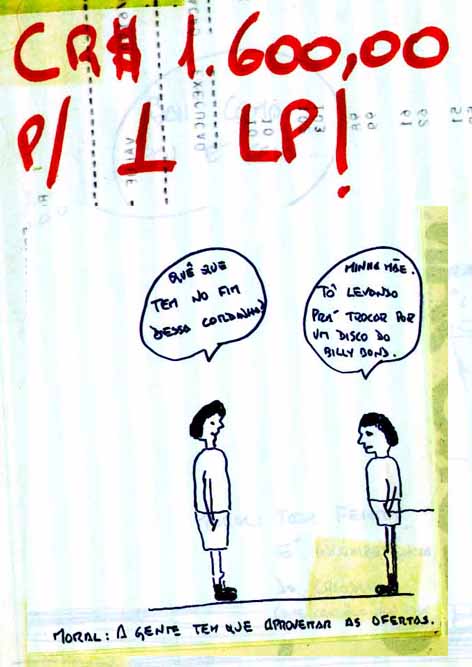 CR$ 1.600,00
P/ 1 LP!
QUÊ QUE
TEM NO FIM
DESSA CORDINHA?
MINHA MÃE.
TÔ LEVANDO
PRÁ TROCAR POR
UM DISCO DO
BILLY BOND.
MORAL: A GENTE TEM QUE APROVEITAR AS OFERTAS.